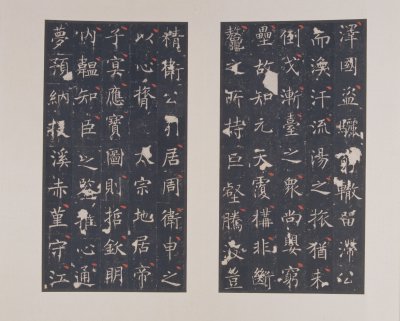 澤國盜驪轍留滯公
而渙汗流湯之旅猶未
倒戈漸臺之眾尚嬰窮
壘故知元天覆構非斷
鼇之所持巨壑騰波豈
精衛公引居周衛申之
以心膂太宗地居帝
子冥應寶圖則哲欽明
內韞知臣之鑒推心通
夢預納投溪赤堇守江